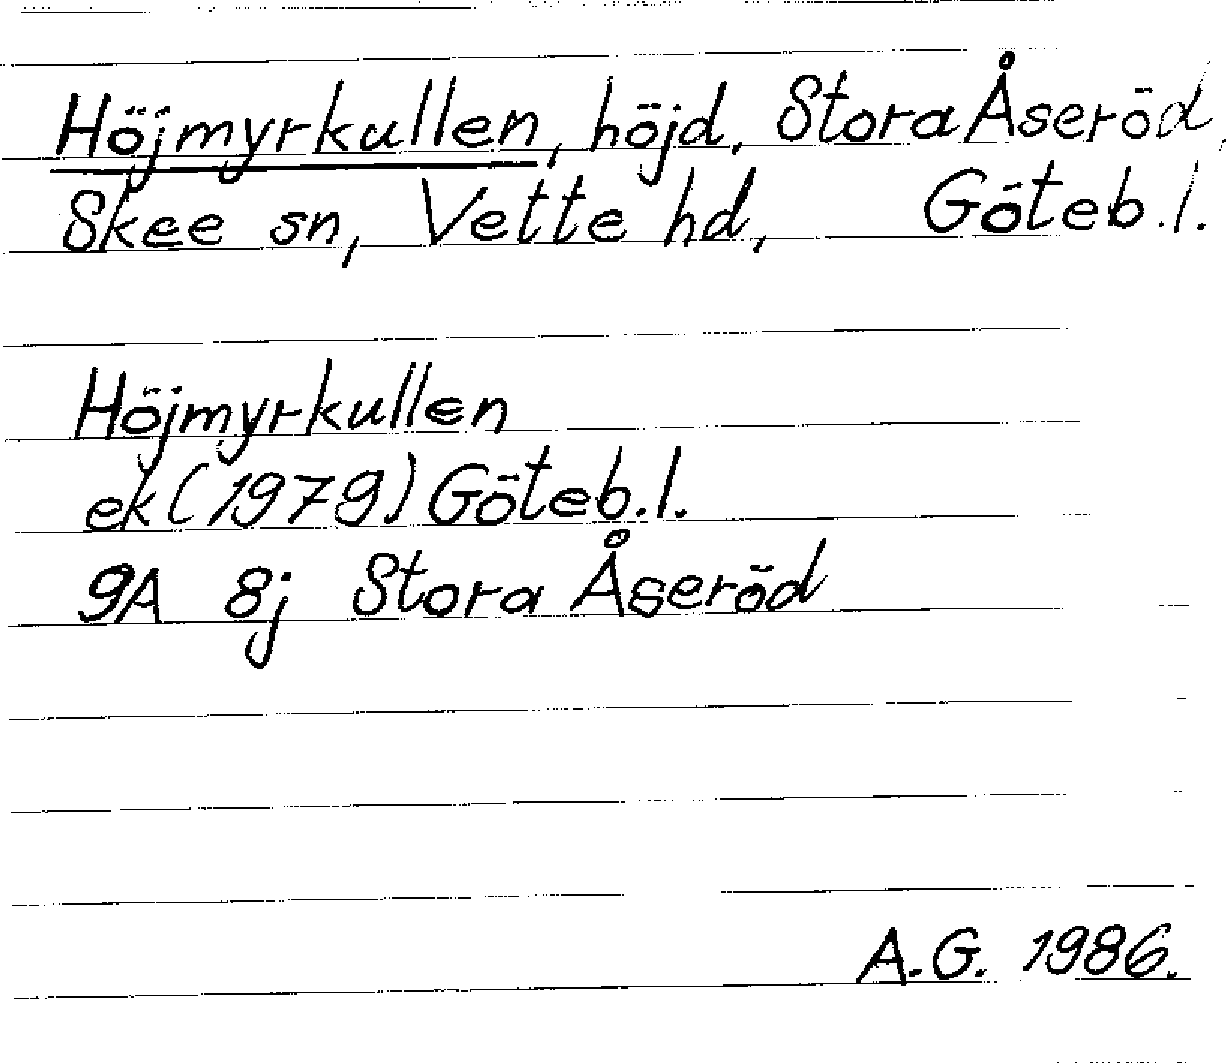 Höjmyrkullen, höjd, Stora Åseröd,
Skee sn, Vette hd, Göteb.l.
Höjmyrkullen
ek (1979) Göteb.l.
9A 8j Stora Åseröd
A.G. 1986.